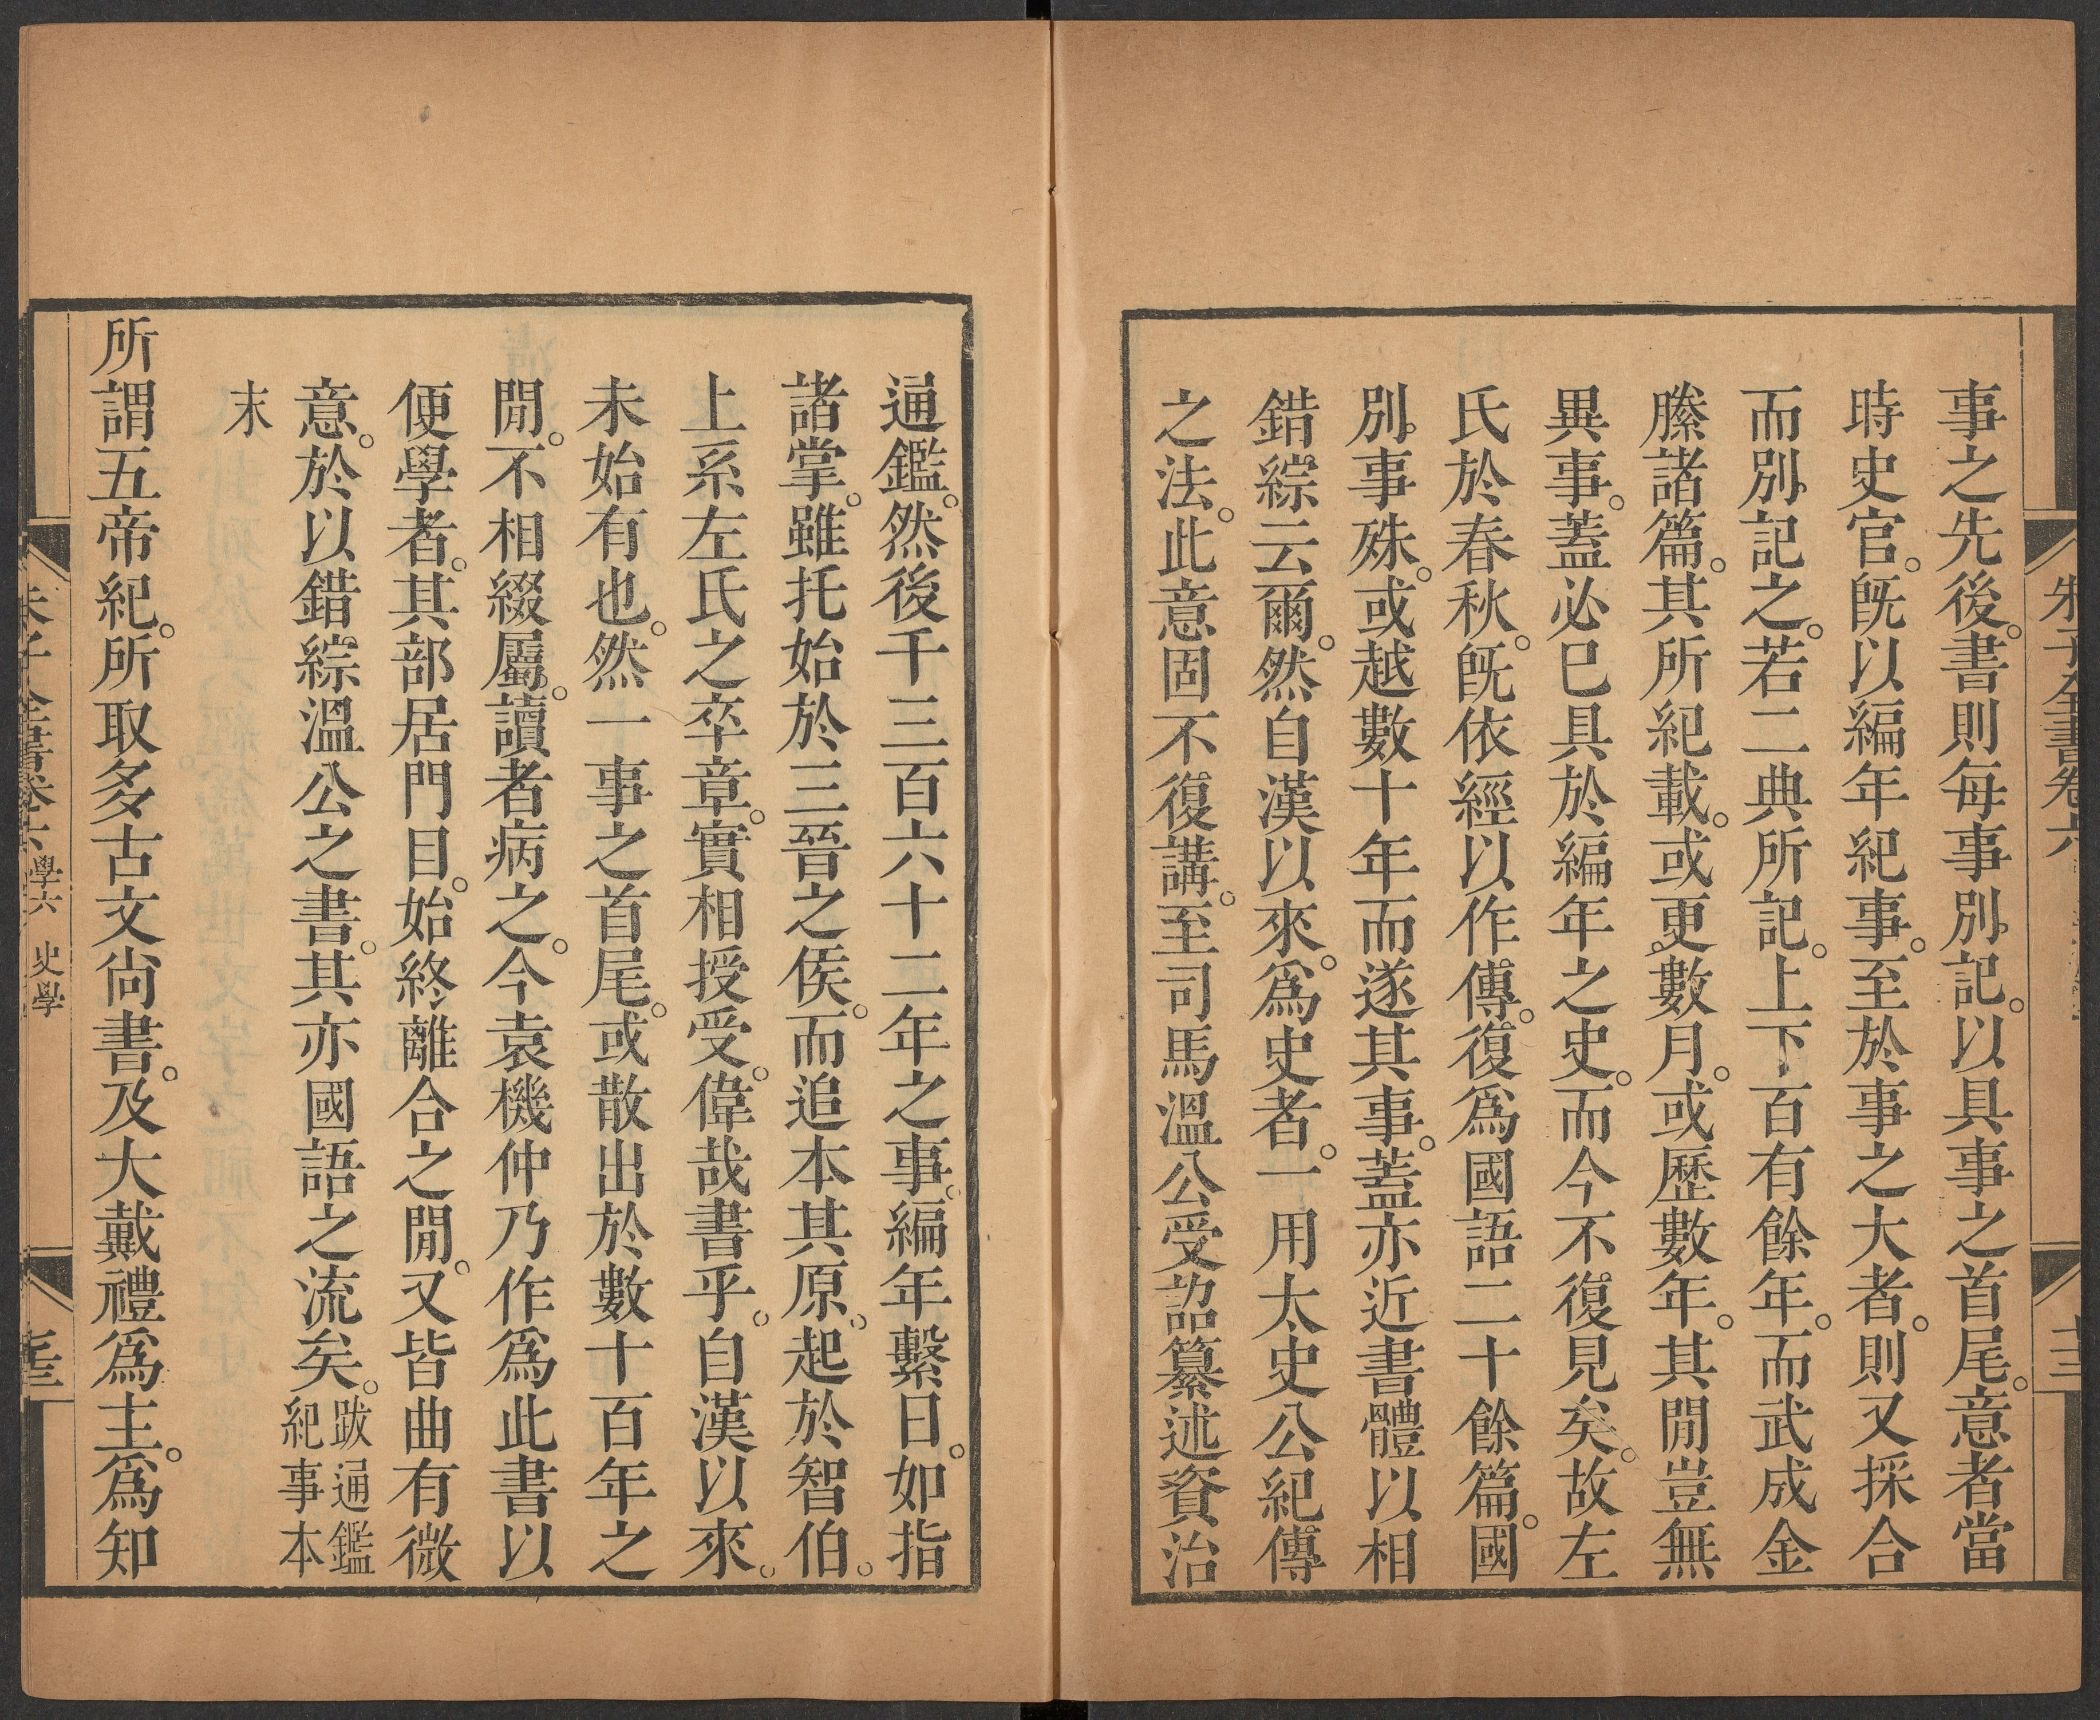 朱子全書卷六
十三
事之先後。書則每事別記。以具事之首尾。意者當
時史官。旣以編年紀事。至於事之大者。則又採合
而別記之。若二典所記。上下百有餘年。而武成金
縢諸篇。其所紀載。或更數月。或歷數年。其閒豈無
異事。蓋必已具於編年之史。而今不復見矣。故左
氏於春秋。旣依經以作傳。復爲國語二十餘篇。國
別事殊。或越數十年而遂其事。蓋亦近書體以相
錯綜云爾。然自漢以來。爲史者。一用太史公紀傳
之法。此意固不復講。至司馬溫公受詔纂述資治
通鑑。然後千三百六十二年之事。編年繫日。如指
諸掌。雖托始於三晉之侯。而追本其原。起於智伯。
上系左氏之卒章。實相授受。偉哉書乎。自漢以來。
未始有也。然一事之首尾。或散出於數十百年之
閒。不相綴屬。讀者病之。今袁機仲乃作爲此書以
便學者。其部居門目。始終離合之閒。又皆曲有微
意。於以錯綜溫公之書。其亦國語之流矣。跋通鑑
紀事本
末
所謂五帝紀。所取多古文尙書。及大戴禮爲主。爲知
朱子全書卷六 學六 史學